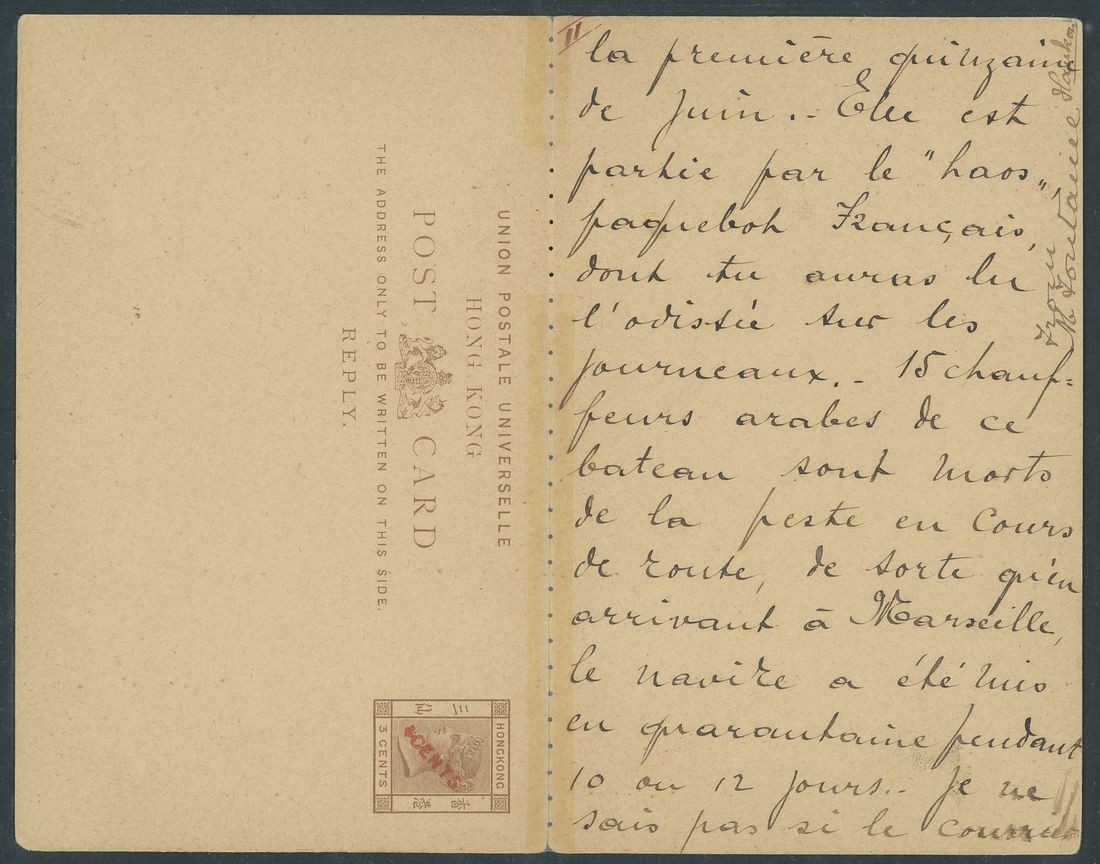 UNION POSTALE UNIVERSELLE
HONG KONG
POST CARD
THE ADDRESS ONLY TO BE WRITTEN ON THIS SIDE.
REPLY.
HONGKONG
三仙
香港
3 CENTS
CENTS
II
la première quinzaine
de Juin.. - Elle est
partie par le "Laos",
paquebot Français,
dont tu auras lu
l'odissée sur les
journeaux. - 15 chauf=
feurs arabes de ce
bateau sont morts
de la peste en cours
de route, de sorte qu'en
arrivant à Marseille,
le navire a été mis
en quarantaine pendant
10 ou 12 jours.. Je ne
sais pas si le courrier
from
M Fontaine Hankow